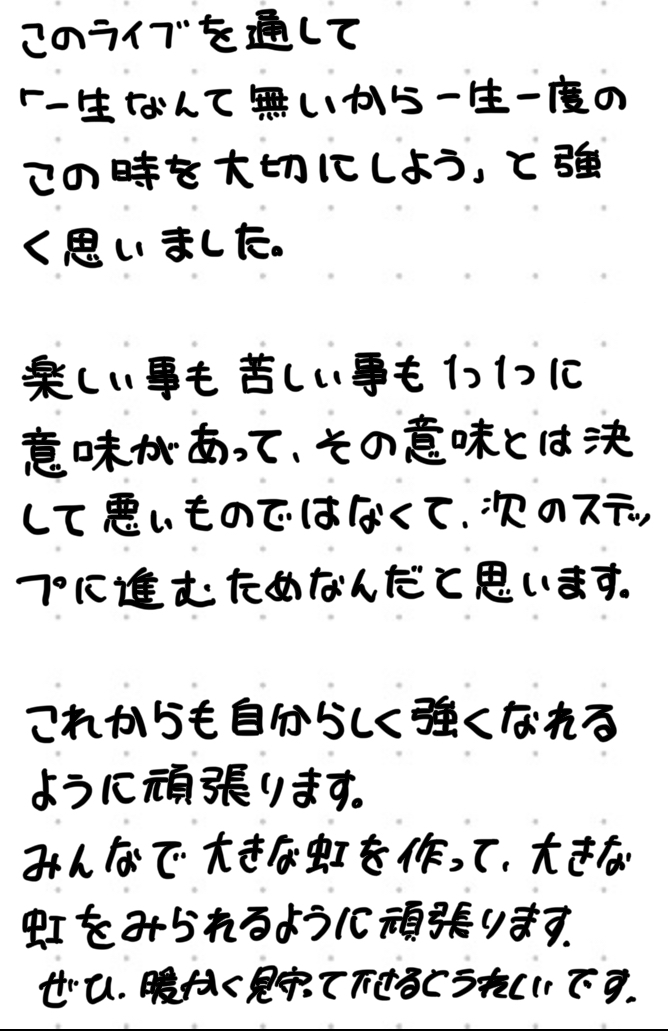 このライブを通して
「一生なんて無いから一生一度の
この時を大切にしよう」と強
く思いました。
楽しい事も苦しい事も1つ1つに
意味があって、その意味とは決
して悪いものではなくて、次のステッ
プに進むためなんだと思います。
これからも自分らしく強くなれる
ように頑張ります。
みんなで大きな虹を作って、大きな
虹をみられるように頑張ります。
ぜひ、暖かく見守って下さるとうれしいです。